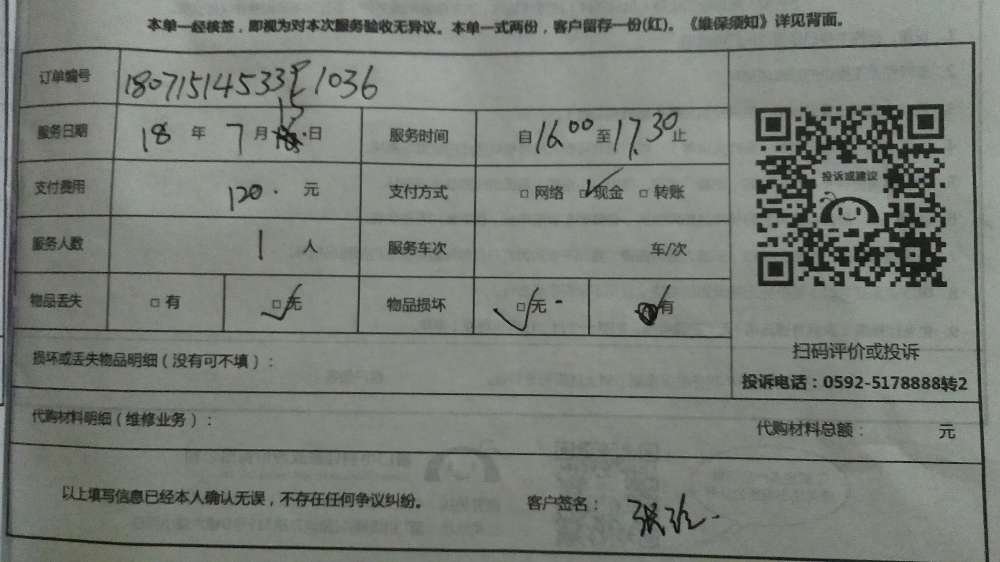 本单一经核签，即视为对本次服务验收无异议。本单一式两份，客户留存一份(红)。《维保须知》详见背面。
订单编号 180715145331036
服务日期 18 年 7 月 15 日 服务时间 自 16.00 至 17.30 止
支付费用 120. 元 支付方式 □ 网络 ☑ 现金 □ 转账
服务人数 1 人 服务车次 车/次
物品丢失 □ 有 ☑ 无 物品损坏 ☑ 无 有
投诉或建议
扫码评价或投诉
投诉电话：0592-5178888转2
损坏或丢失物品明细（没有可不填）：
代购材料明细（维修业务）： 代购材料总额： 元
以上填写信息已经本人确认无误，不存在任何争议纠纷。 客户签名： 张